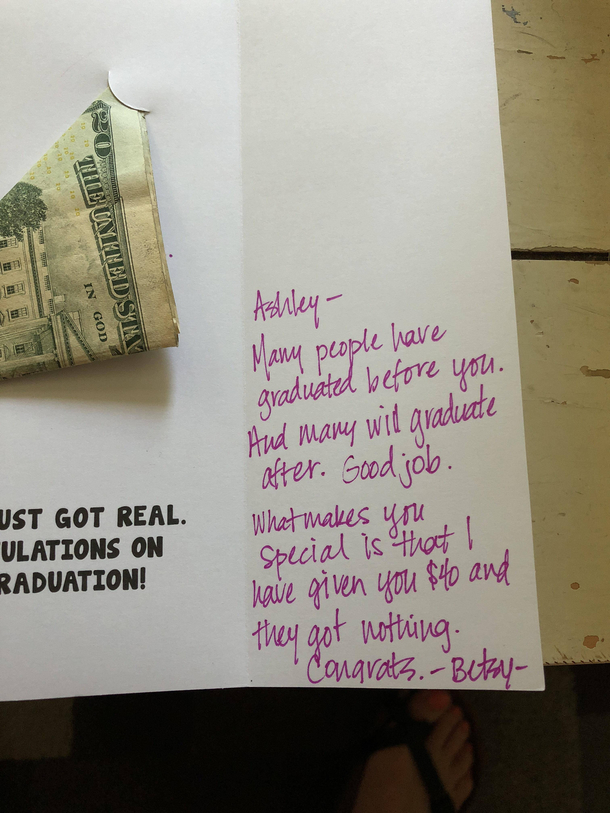 20
THE UNITED STA
IN GOD
UST GOT REAL.
ULATIONS ON
RADUATION!
Ashley –
Many people have
graduated before you.
And many will graduate
after. Good job.
What makes you
special is that I
have given you $40 and
they got nothing.
Congrats. – Betsy –